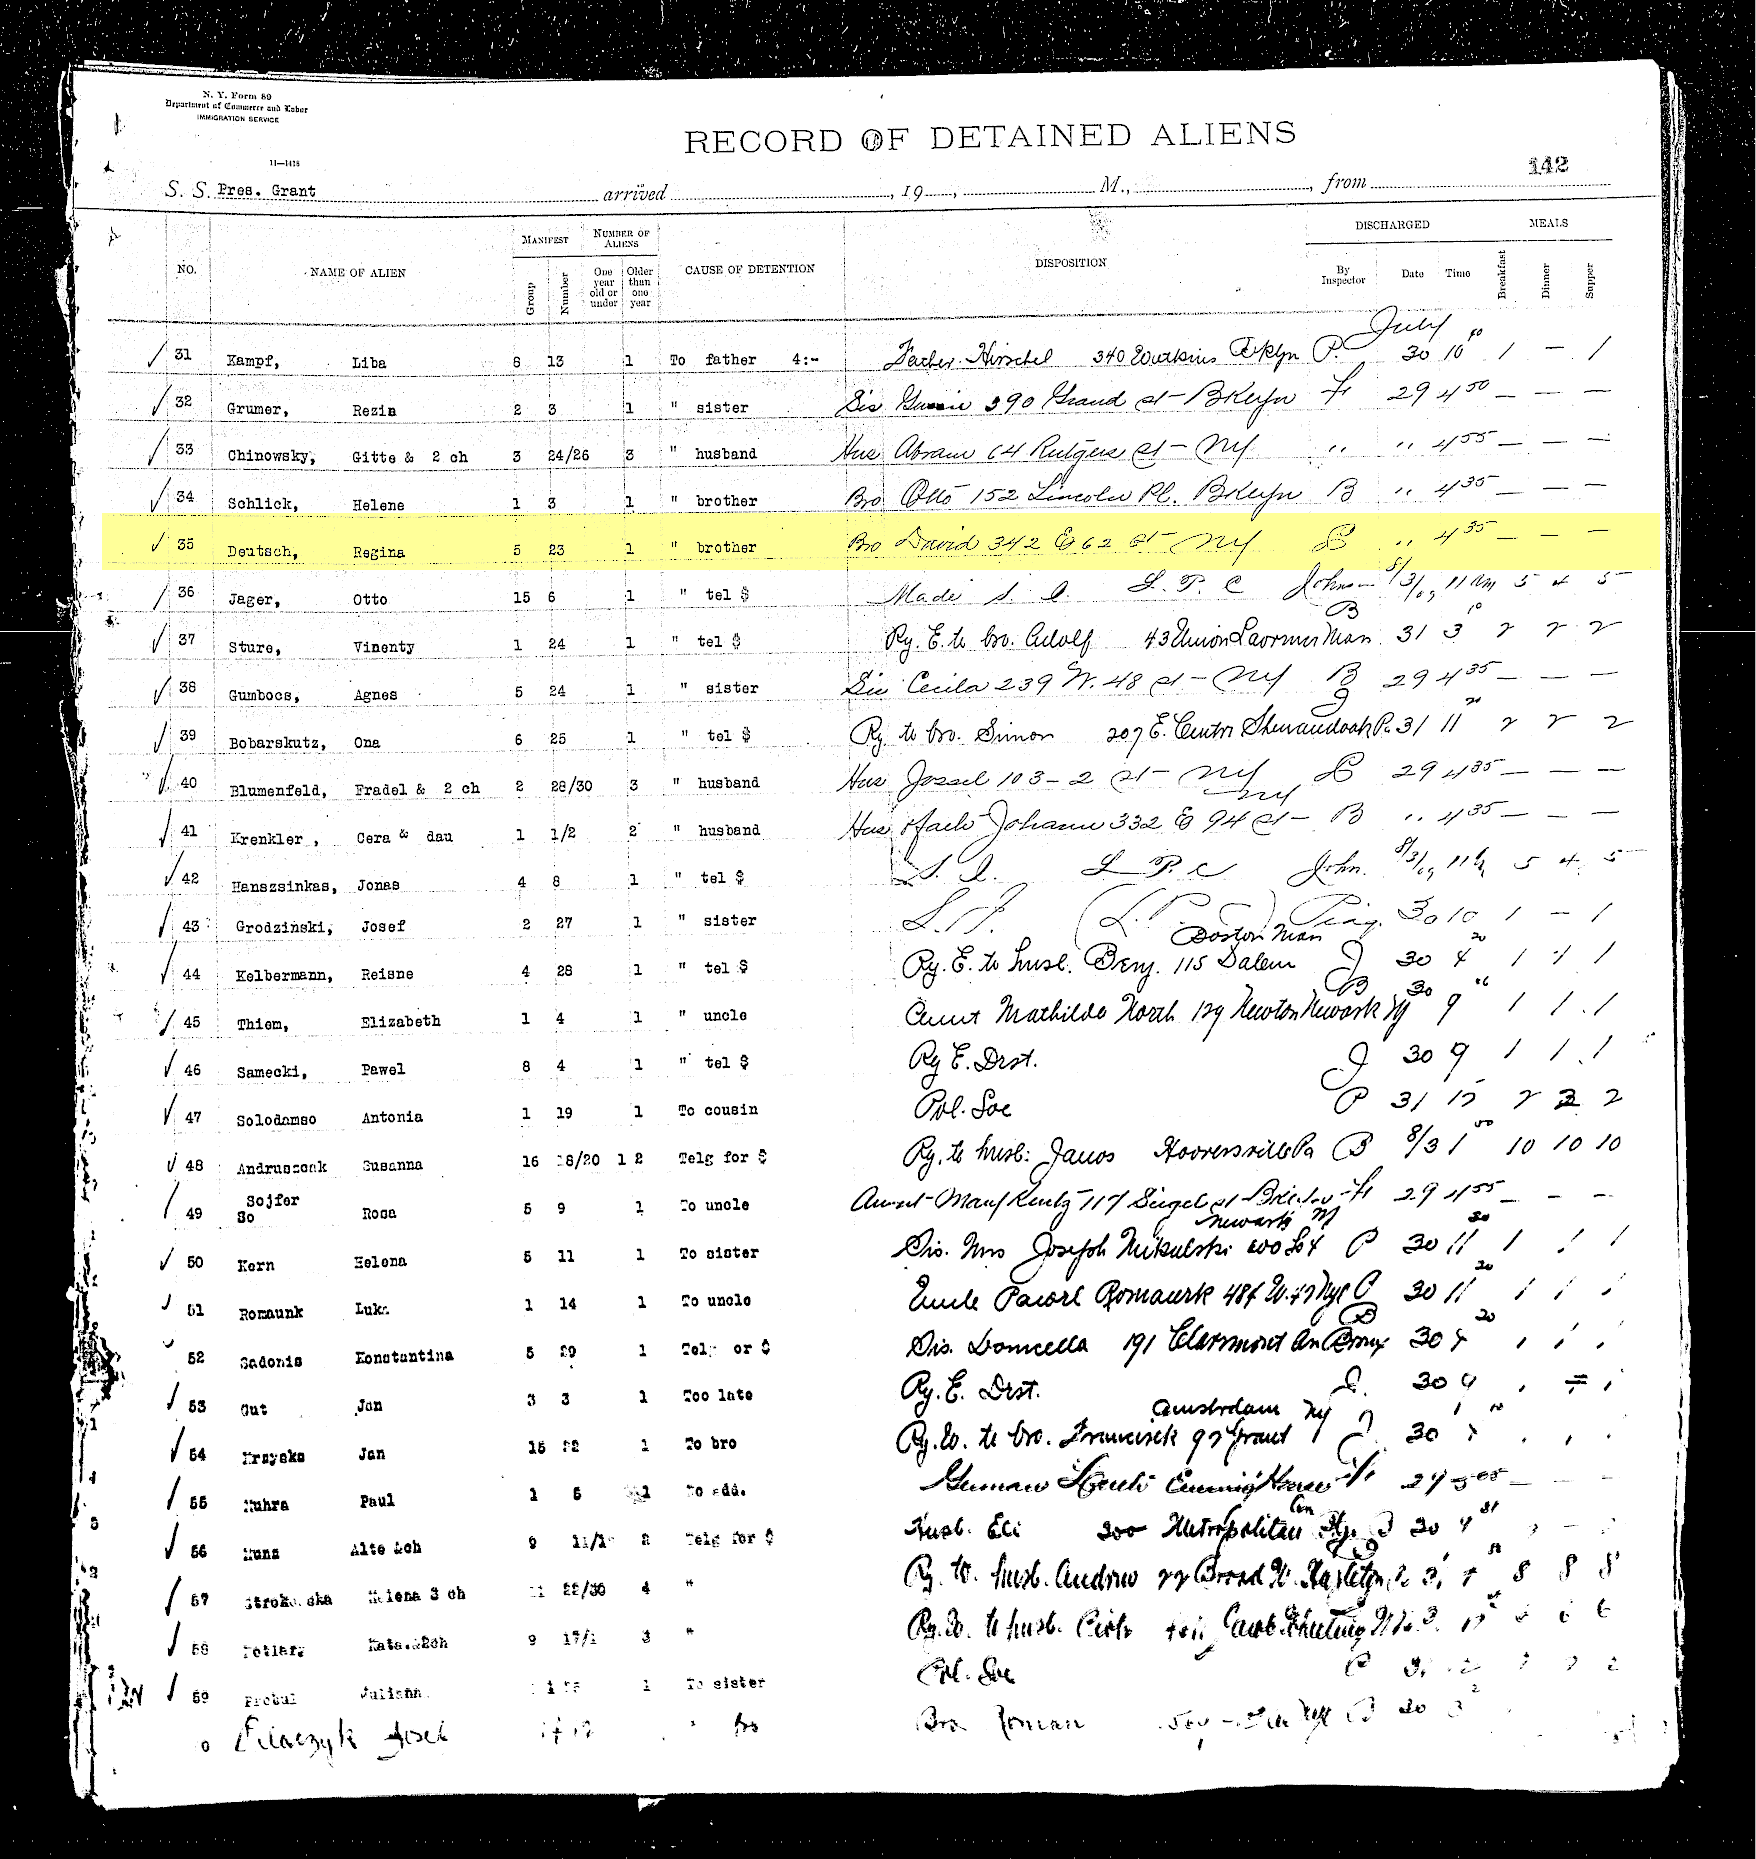 N. Y. Form 89
Department of Commerce and Labor
IMMIGRATION SERVICE
11—1418
RECORD OF DETAINED ALIENS
142
S. S. Pres. Grant arrived , 19 , M., , from
NO. NAME OF ALIEN MANIFEST Group Number NUMBER OF ALIENS One year old or under Older than one year CAUSE OF DETENTION DISPOSITION DISCHARGED By Inspector Date Time MEALS Breakfast Dinner Supper
July
31 Kampf, Liba 6 13 1 To father 4:- Father Hirschel 340 Watkins Bklyn P. 30 10 1 — 1
32 Grumer, Rezia 2 3 1 " sister Sis 390 Grand st - BKlyn Fr 29 4 50 — — —
33 Chinowsky, Gitte & 2 ch 3 24/26 3 " husband Hus Abram 64 Rutgers st - NY " " 4 55 — — —
34 Schlick, Helene 1 3 1 " brother Bro Otto 152 Lincoln Pl. BKlyn B " 4 35 — — —
35 Deutsch, Regina 5 23 1 " brother Bro David 342 E 62 st - NY B " 4 35 — — —
36 Jager, Otto 15 6 1 " tel $ Made S. I. L. P. C Johnson 8/3/09 11 AM 5 4 5
37 Sture, Vinenty 1 24 1 " tel $ Ry. E. to bro. Adolf 43 Union Man B 31 3 10 2 2 2
38 Gumbocs, Agnes 5 24 1 " sister Sis Cecila 239 W. 48 st - NY B 29 4 35 — — —
39 Bobarskutz, Ona 6 25 1 " tel $ Ry to bro. Simon 207 E. Centre Shenandoah Pa 31 11 20 2 2 2
40 Blumenfeld, Fradel & 2 ch 2 28/30 3 " husband Hus Jossel 103 - 2 st - NY B 29 4 35 — — —
41 Krenkler, Cera & dau 1 1/2 2 " husband Hus Johann 332 E 94 st - NY B " 4 35 — — —
42 Hanszsinkas, Jonas 4 8 1 " tel $ S. I. L P. C John. 8/3/09 11 5 4 5
43 Grodzinski, Josef 2 27 1 " sister S. I. 30 10 1 — 1
44 Kelbermann, Reisne 4 28 1 " tel $ Ry. E. to husb. Benj. 115 Salem Boston Man J 30 4 20 1 1 1
45 Thiem, Elizabeth 1 4 1 " uncle Aunt Mathilda North 129 Newton Newark NJ B 30 9 1 1 1
46 Samecki, Pawel 8 4 1 " tel $ Ry E. Drst. J 30 9 1 1 1
47 Solodamso Antonia 1 19 1 To cousin Pol. Soc P 31 12 2 2 2
48 Andruszcak Susanna 16 18/20 1 2 Telg for $ Ry. to husb: Janos Hooversville Pa B 8/3 1 10 10 10
49 So Sojfer Rosa 5 9 1 To uncle Aunt Mary 117 Siegel st - Fr 29 4 55 — — —
50 Kern Helena 5 11 1 To sister Sis. Mrs Joseph Mikulski Newark NJ P 30 11 30 1 1 1
51 Romaunk Luka 1 14 1 To uncle Uncle Romaurk P 30 11 30 1 1 1
52 Sadonis Konstantina 5 29 1 Telg or $ Sis. Domicella 191 Claremont Av B 30 4 20 1 1 1
53 Gut Jan 3 3 1 Too late Ry. E. Drst. J. 30 9
54 Krzyska Jan 15 22 1 To bro Ry. W. to bro. Franciszek 92 Grant Amsterdam NY J 30
55 Muhra Paul 1 5 1 To add. German Fr 29 5 05 — — —
56 Munz Alte &ch 9 2 Telg for $ Husb. Eli 300 Metropolitan 30 4
57 Helena 3 ch 22/30 4 " Ry. W. husb. Andrew 22 Broad W. Hazleton 8 8 8
58 Kata.&2ch 9 3 " Ry. W. to husb. 6 6
59 Juliana 1 To sister Pol. Soc P
Josef " bro Bro Roman 30 3